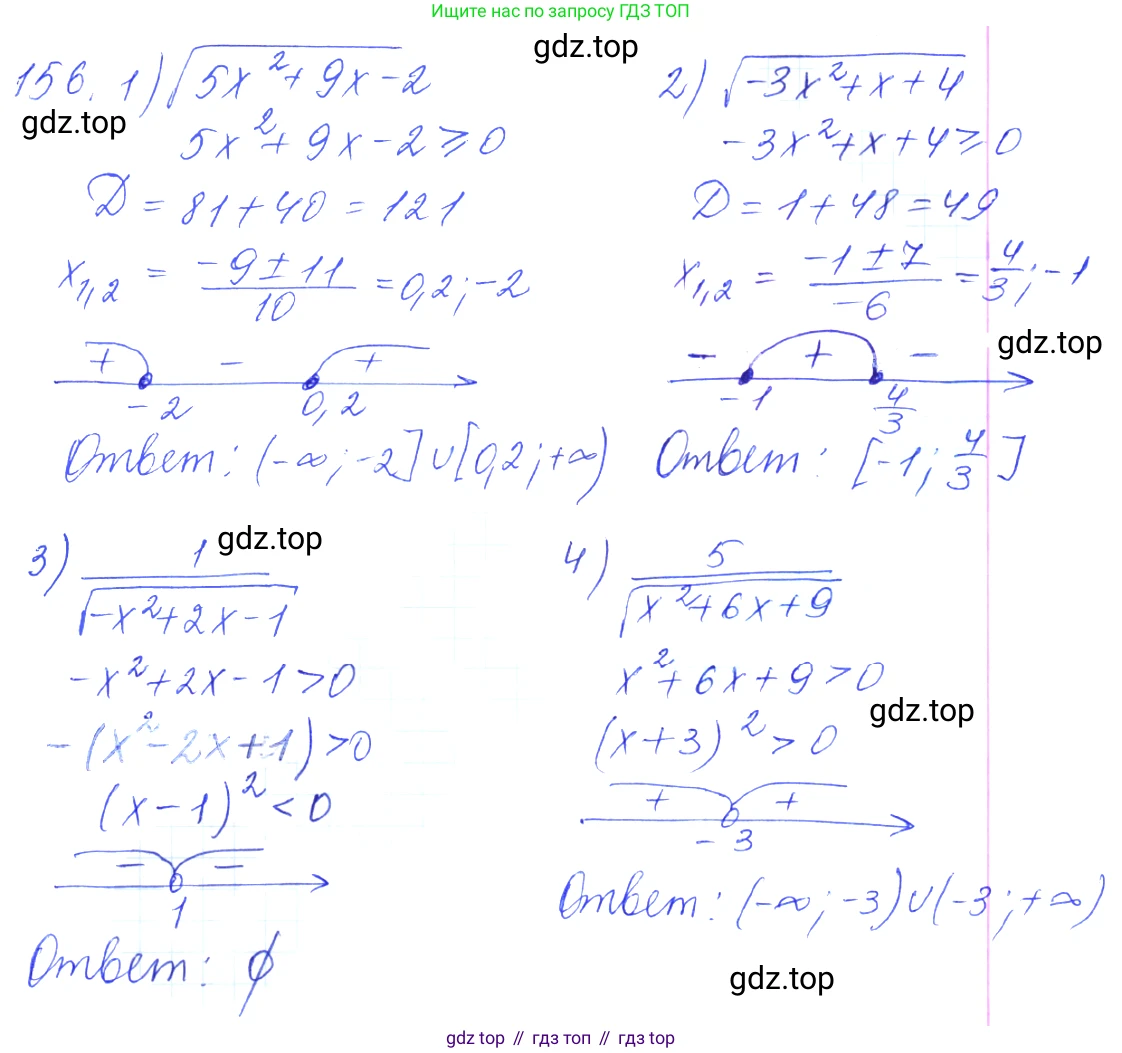 Ищите нас по запросу ГДЗ ТОП
gdz.top
156. 1) √(5x² + 9x - 2)
gdz.top
5x² + 9x - 2 ≥ 0
D = 81 + 40 = 121
x₁,₂ = (-9 ± 11)/10 = 0,2; -2
+ - +
-2 0,2
Ответ: (-∞; -2] ∪ [0,2; +∞)
2) √(-3x² + x + 4)
-3x² + x + 4 ≥ 0
D = 1 + 48 = 49
x₁,₂ = (-1 ± 7)/(-6) = 4/3; -1
gdz.top
- + -
-1 4/3
Ответ: [-1; 4/3]
gdz.top
3) 1/√(-x² + 2x - 1)
-x² + 2x - 1 > 0
-(x² - 2x + 1) > 0
(x - 1)² < 0
- -
1
Ответ: ∅
4) 5/√(x² + 6x + 9)
x² + 6x + 9 > 0
gdz.top
(x + 3)² > 0
+ +
-3
Ответ: (-∞; -3) ∪ (-3; +∞)
gdz.top
gdz top // гдз топ // гдз top